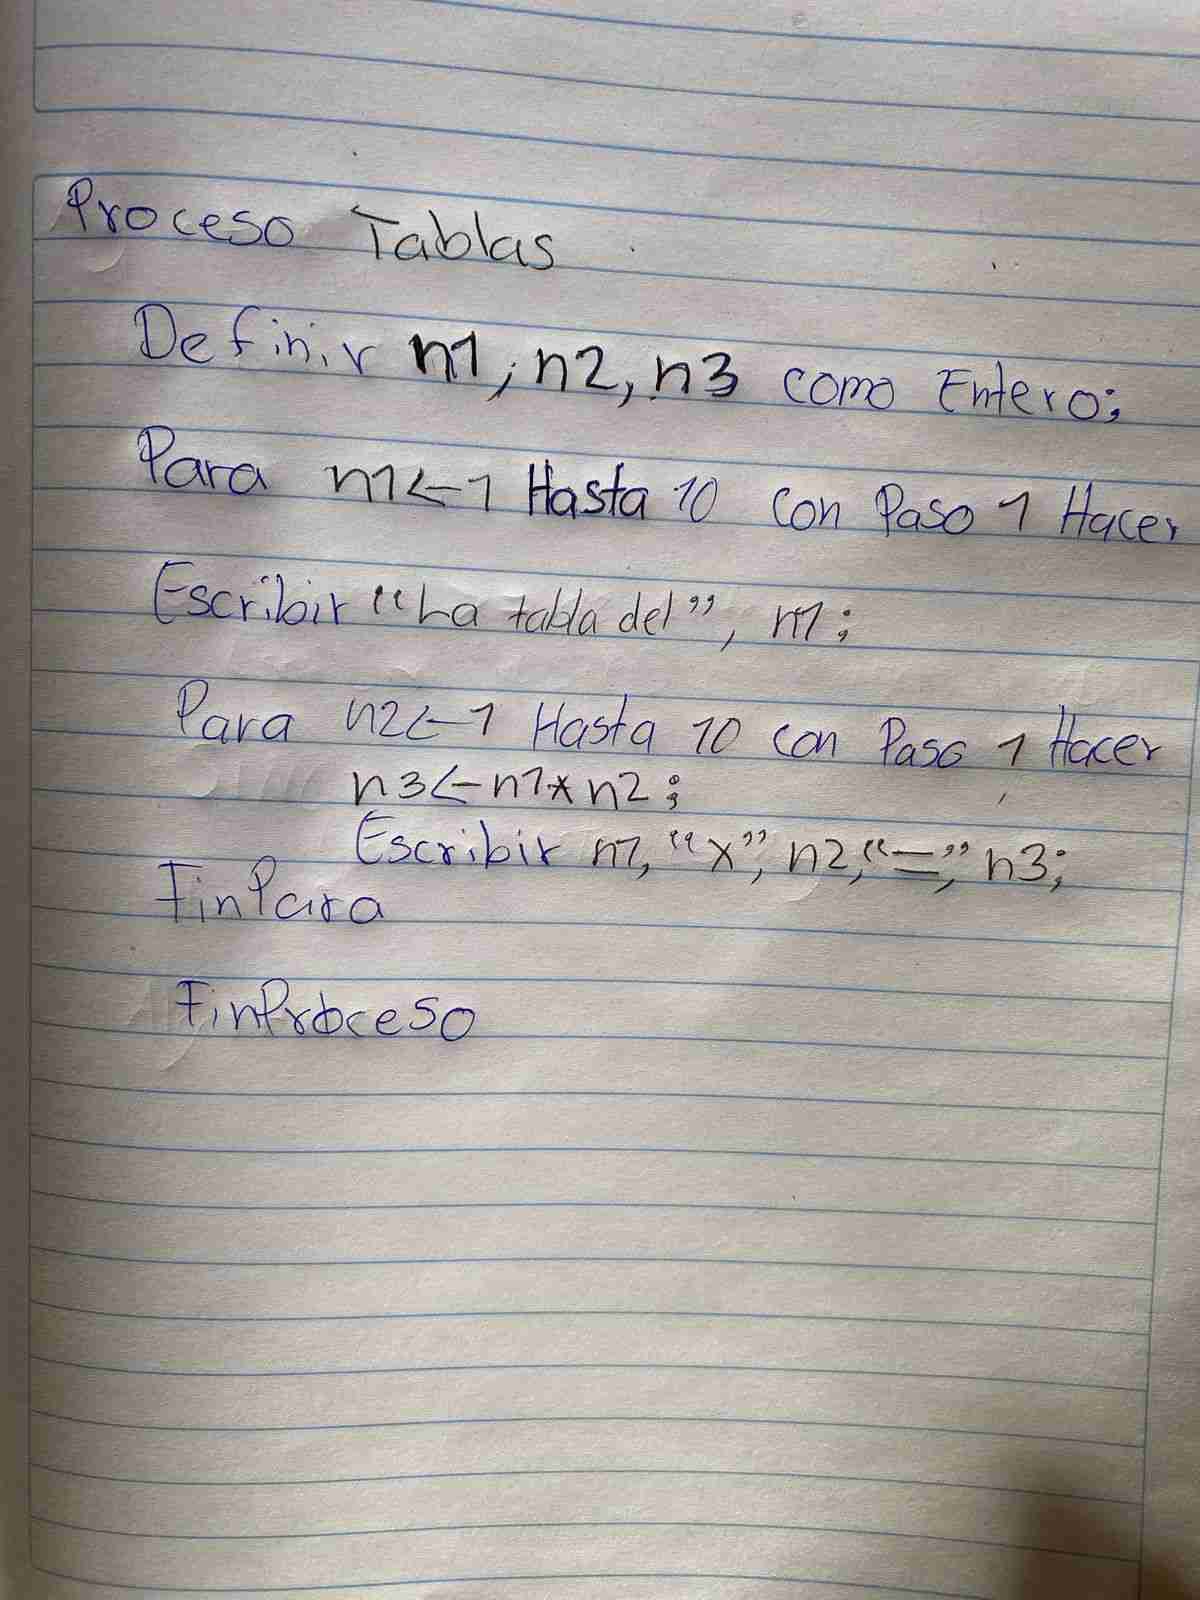 Proceso Tablas
Definir n1, n2, n3 como Entero;
Para n1<-1 Hasta 10 Con Paso 1 Hacer
Escribir "La tabla del", n1;
Para n2<-1 Hasta 10 con Paso 1 Hacer
n3<-n1*n2;
Escribir n1,"x",n2,"=",n3;
FinPara
FinProceso